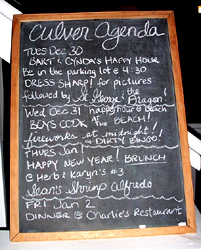 Culver Agenda
TUES DEC 30
BART & CYNDA'S HAPPY HOUR
Be in the parking lot @ 4:30
DRESS SHARP! for pictures
followed by St. George & the Dragon!
Wed Dec 31 happy hour @ beach
BOYS COOK @ THE BEACH!
fireworks at midnight!
& DIRTY BINGO!
THURS JAN 1
HAPPY NEW YEAR! BRUNCH
@ Herb & Karyn's #3
Jean's Shrimp Alfredo
FRI JAN 2
DINNER @ Charlie's Restaurant